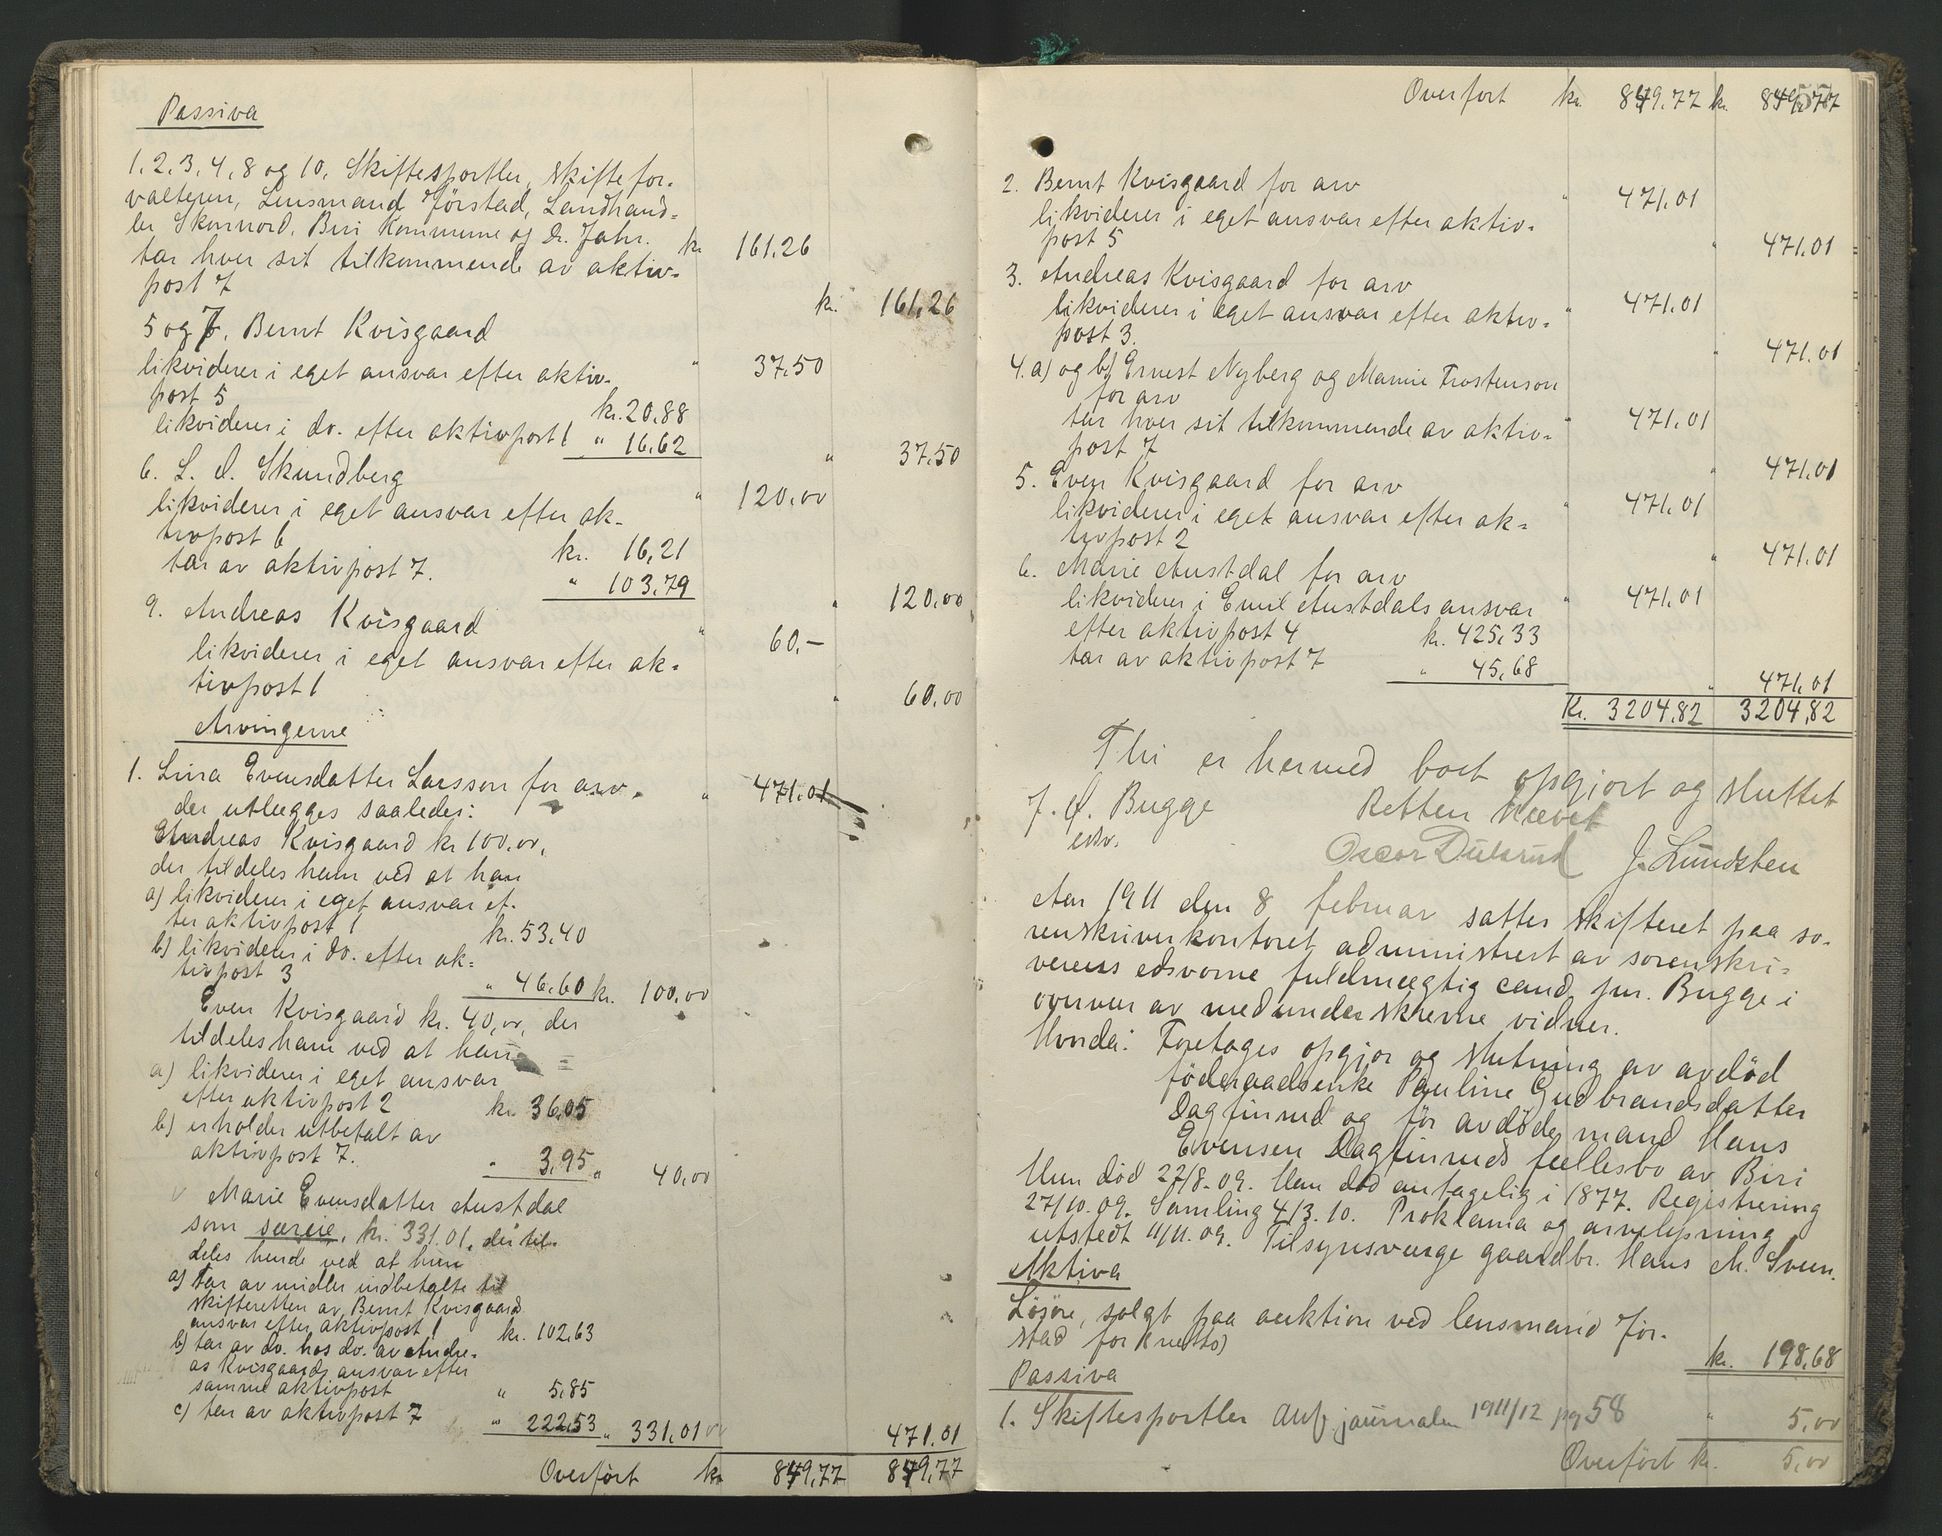 Passiva
1, 2, 3, 4, 8 og 10. Skiftesportler, skiftefor-
valteren, Lensmand Jørstad, Landhand-
ler Skonnord, Biri Kommune og Dr. Jahr. kr. 161,26
tar hver sit tilkommende av aktiv-
post 7 kr. 161,26
5 og 7. Bernt Kvisgaard " 37,50
likviderer i eget ansvar efter aktiv-
post 5 kr. 20,88
likviderer i do. efter aktivpost 1 " 16,62 " 37,50
6. L. O. Skundberg " 120,00
likviderer i eget ansvar efter ak-
tivpost 6 kr. 16,21
tar av aktivpost 7. " 103,79 " 120,00
9. Andreas Kvisgaard " 60,-
likviderer i eget ansvar efter ak-
tivpost 1 " 60,00
Arvingerne
1. Lina Evensdatter Larsson for arv. " 471,01
der utlægges saaledes:
Andreas Kvisgaard kr 100,00,
der tildeles ham ved at han
a) likviderer i eget ansvar ef-
ter aktivpost 1 kr. 53,40
b) likviderer i do. efter ak-
tivpost 3 " 46,60 kr. 100,00
Even Kvisgaard kr. 40,00, der
tildeles ham ved at han
a) likviderer i eget ansvar
efter aktivpost 2 kr. 36,05
b) erholder utbetalt av
aktivpost 7. " 3,95 " 40,00
Marie Evensdatter Austdal
som særeie, kr. 331,01, der til-
deles hende ved at hun
a) tar av midler indbetalte til
skifteretten av Bernt Kvisgaard
ansvar efter aktivpost 1 kr. 102,63
b) tar av do. hos do. av Andre-
as Kvisgaards ansvar efter
samme aktivpost " 5,85
c) tar av aktivpost 7 " 222,53 " 331,01 471,01
Overført kr. 849,77 849,77
57
Overført kr. 849,77 kr. 849,77
2. Bernt Kvisgaard for arv " 471,01
likviderer i eget ansvar efter aktiv-
post 5 " 471,01
3. Andreas Kvisgaard for arv
likviderer i eget ansvar efter aktiv- " 471,01
post 3. " 471,01
4. a) og b) Ernest Nyberg og Mamie Frostenson
for arv
tar hver sit tilkommende av aktiv- " 471,01
post 7 " 471,01
5. Even Kvisgaard for arv " 471,01
likviderer i eget ansvar efter ak-
tivpost 2 " 471,01
6. Marie Austdal for arv
likviderer i Emil Austdals ansvar " 471,01
efter aktivpost 4 kr. 425,33
tar av aktivpost 7 " 45,68 " 471,01
Kr. 3204,82 3204,82
Thi er hermed boet opgjort og sluttet
Retten hævet
J. Ø. Bugge
edsv.
J. Lundsten
Aar 1911 den 8 februar sattes skifteret paa so-
renskriverkontoret, administrert av sorenskri-
verens edsvorne fuldmægtig cand. jur. Bugge i
overvær av medunderskrevne vidner.
Hvorda: Foretages opgjør og slutning av avdød
føderaadsenke Pauline Gudbrandsdatter
Dagfinrud og før avdøde mand Hans
Evensen Dagfinruds fællesbo av Biri
Hun død 22/8-09. Han død antagelig i 1877. Registrering
27/10.09. Samling 4/3.10. Proklama og arvelysning
utstedt 11/11.09. Tilsynsværge gaardbr. Hans M. Sveen.
Aktiva
Løsøre, solgt paa auktion ved lensmand Jør-
stad for (netto) kr. 198,68
Passiva
1. Skiftesportler Anf. journalen 1911/12 pg 58 " 5,00
Overført kr. 5,00